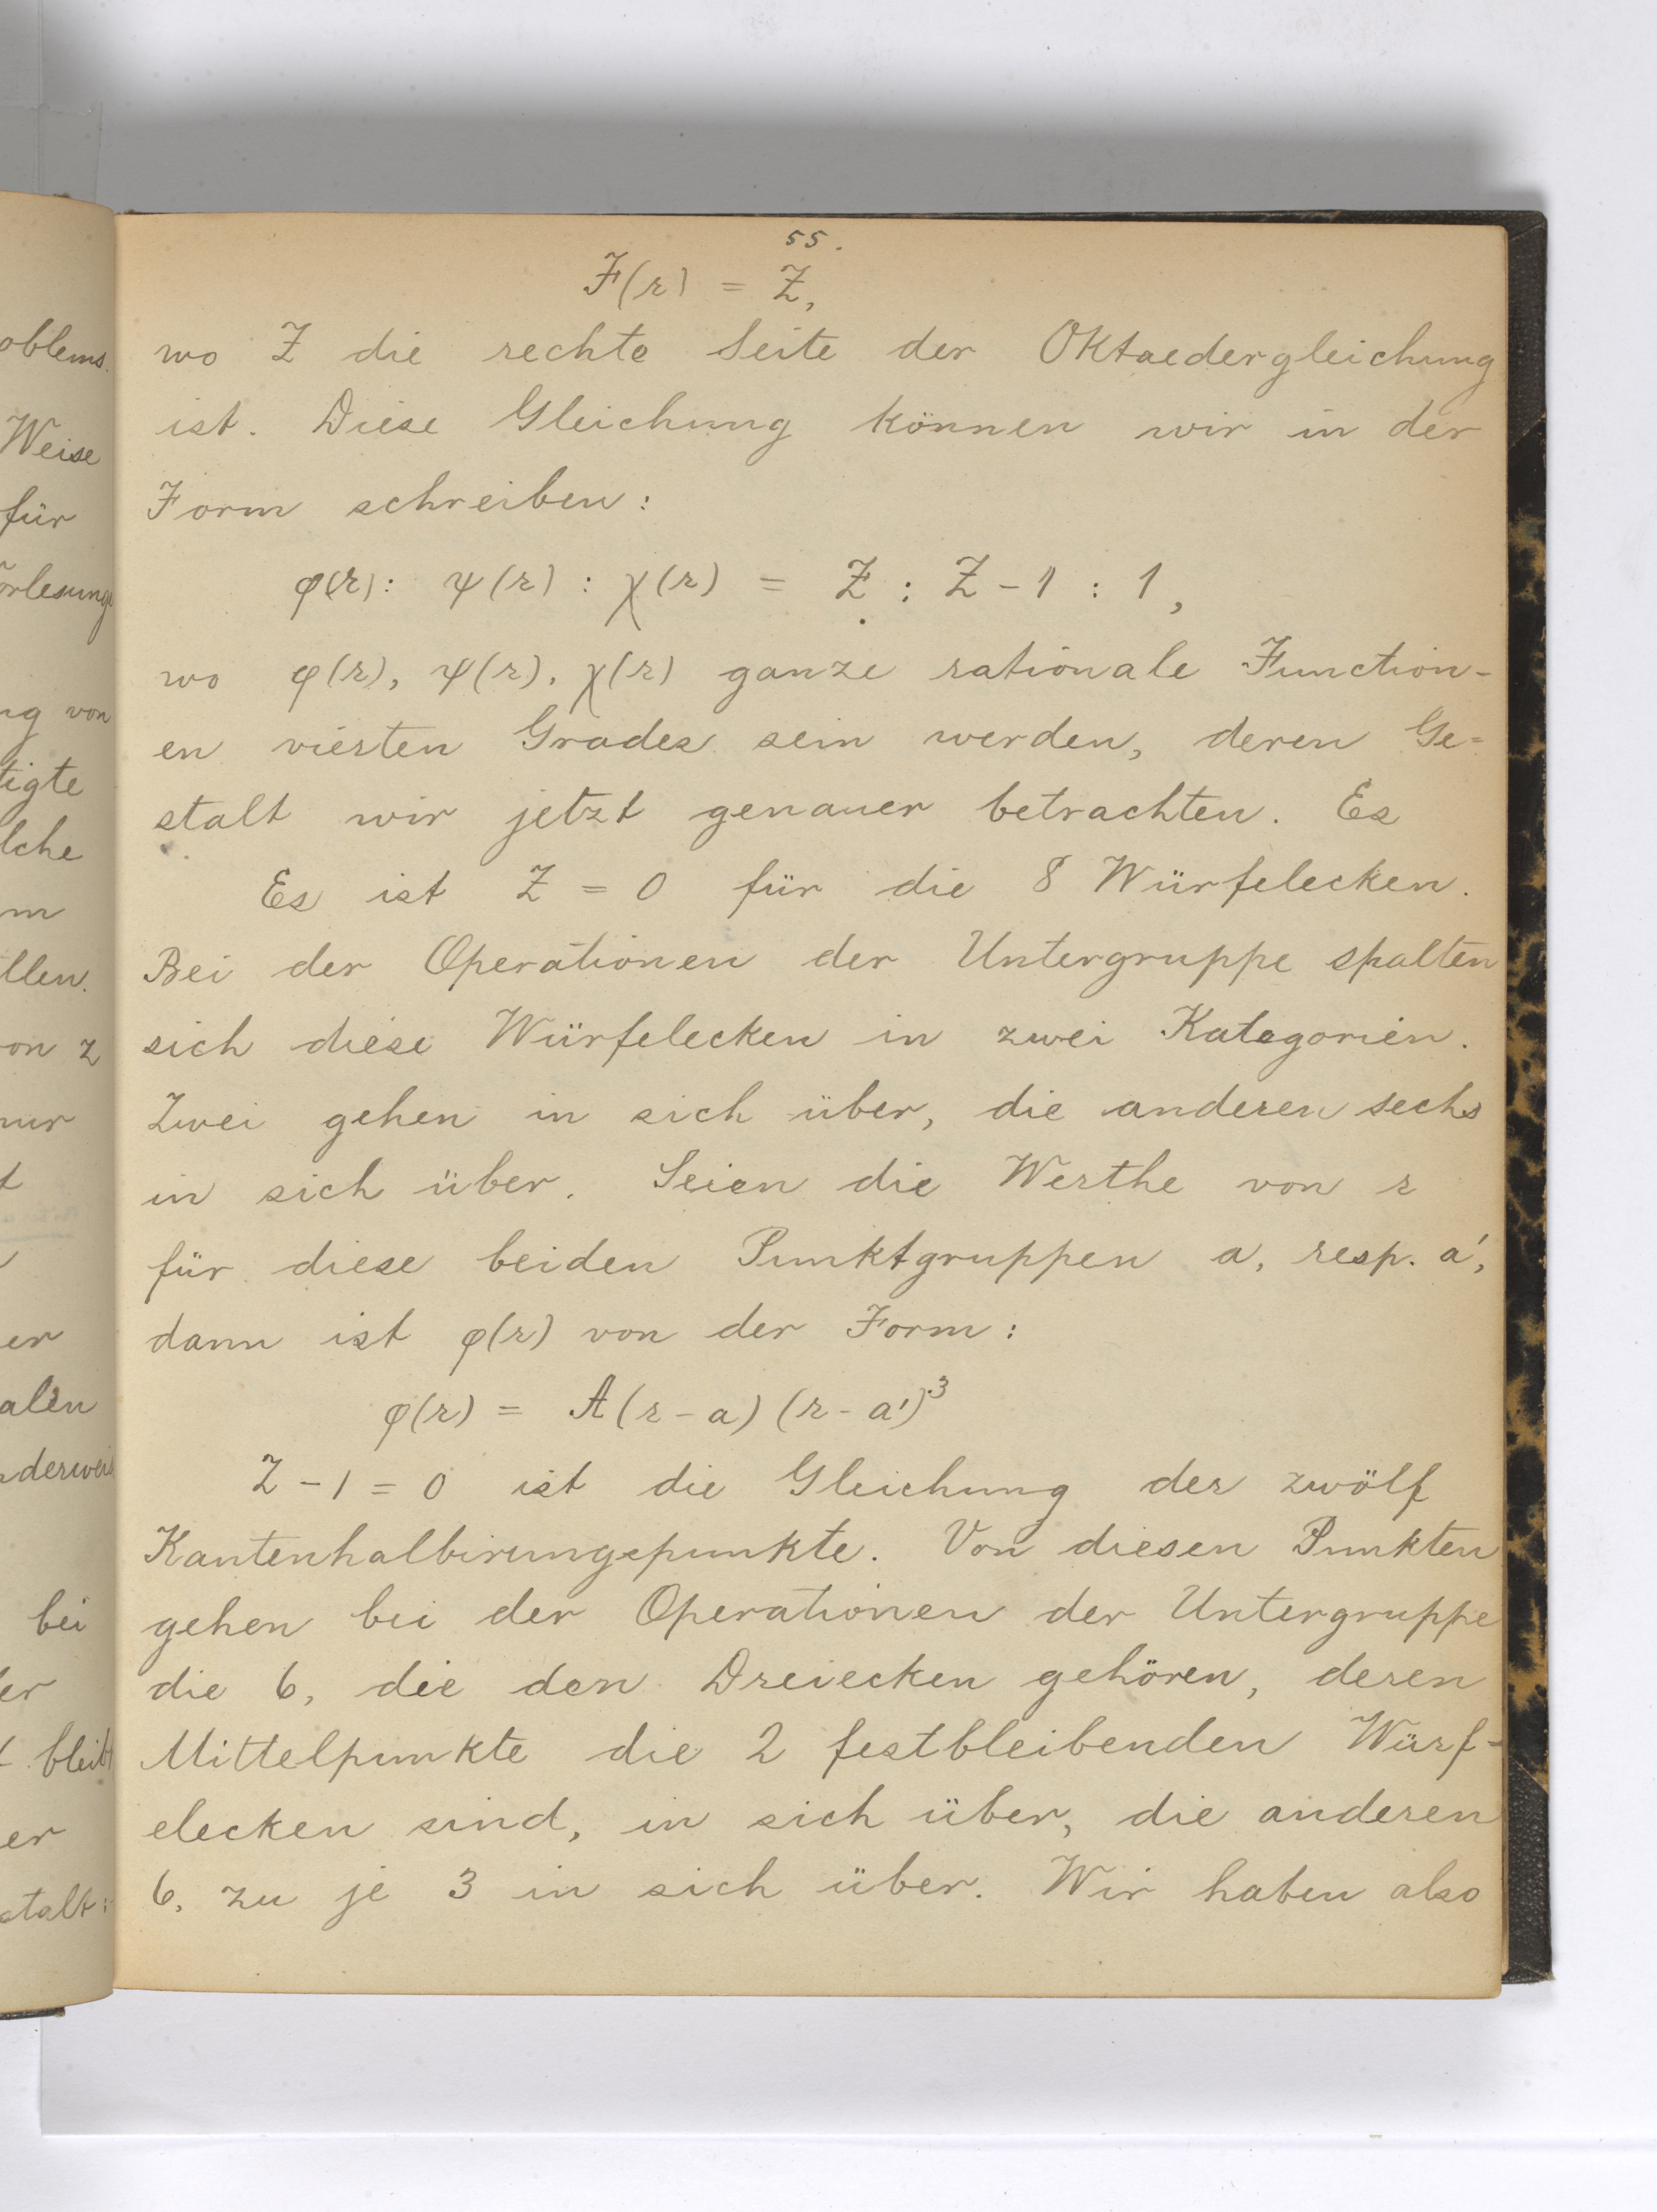 55.
F(r) = Z,
wo Z die rechte Seite der Oktaedergleichung
ist. Diese Gleichung können wir in der
Form schreiben:
φ(r): ψ(r) : χ(r) = Z : Z - 1 : 1,
wo φ(r), ψ(r), χ(r) ganze rationale Function-
en vierten Grades sein werden, deren Ge=
stalt wir jetzt genauer betrachten. Es
Es ist Z = 0 für die 8 Würfelecken.
Bei der Operationen der Untergruppe spalten
sich diese Würfelecken in zwei Kategorien.
Zwei gehen in sich über, die anderen sechs
in sich über. Seien die Werthe von r
für diese beiden Punktgruppen a, resp. a',
dann ist φ(r) von der Form:
φ(r) = A(r - a) (r - a')³
Z - 1 = 0 ist die Gleichung der zwölf
Kantenhalbirungspunkte. Von diesen Punkten
gehen bei der Operationen der Untergruppe
die 6, die den Dreiecken gehören, deren
Mittelpunkte die 2 festbleibenden Würf-
elecken sind, in sich über, die anderen
6, zu je 3 in sich über. Wir haben also
oblems.
Weise
für
orlesung
ng von
tigte
lche
m
llen.
on z
nur
t
er
alen
nderweis
bei
er
t bleibt
er
stalt: